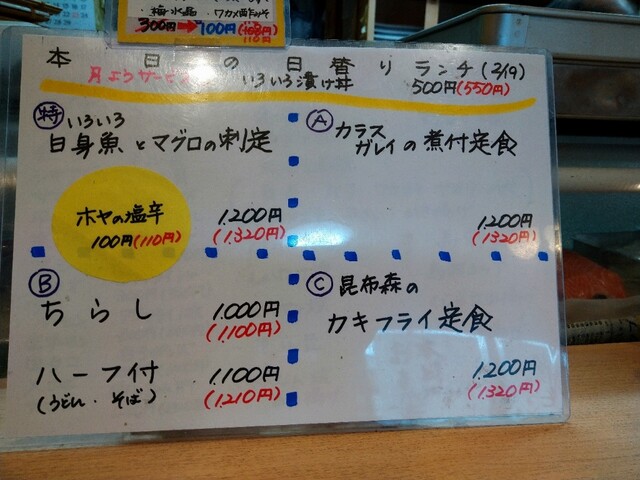 300円→100円
110円
本日の日替りランチ(2/19)
月ようサービス いろいろ漬け丼 500円(550円)
特 いろいろ
白身魚とマグロの刺定
1.200円
(1.320円)
ホヤの塩辛
100円(110円)
A カラス
ガレイの煮付定食
1.200円
(1.320円)
B
ちらし 1.000円
(1.100円)
ハーフ付 1.100円
(うどん・そば) (1.210円)
C 昆布森の
カキフライ定食
1.200円
(1.320円)